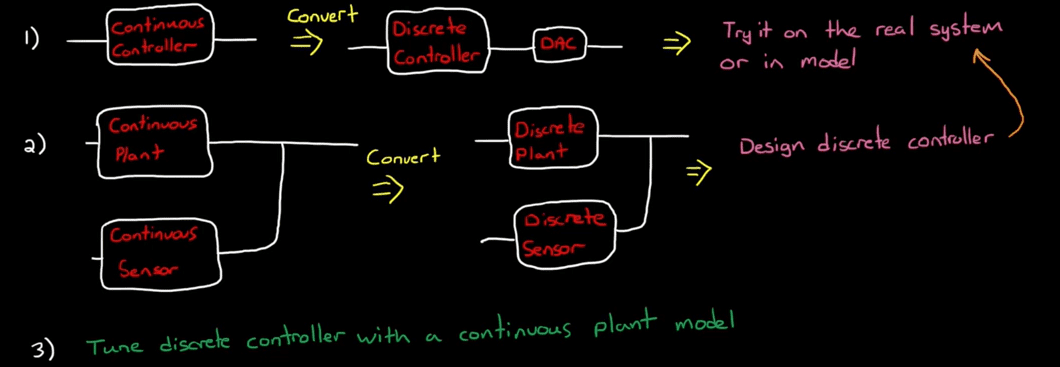 1)
Continuous
Controller
Convert
Discrete
Controller
DAC
Try it on the real system
or in model
2)
Continuous
Plant
Continuous
Sensor
Convert
Discrete
Plant
Discrete
Sensor
Design discrete controller
3) Tune discrete controller with a continuous plant model